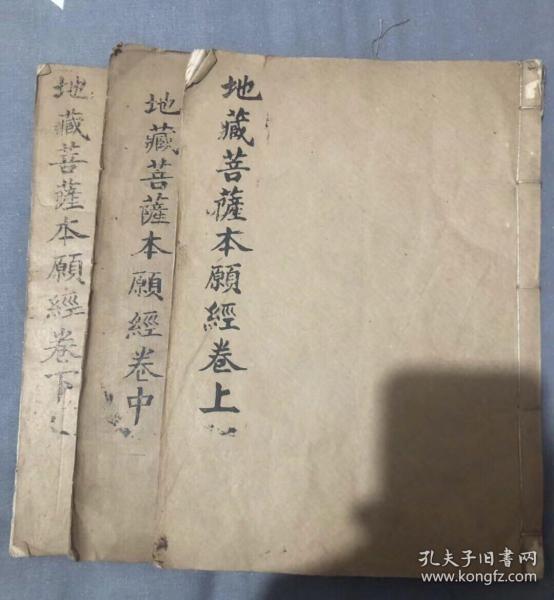 地藏菩薩本願經卷上
地藏菩薩本願經卷中
地藏菩薩本願經卷下
孔夫子旧书网
www.kongfz.com